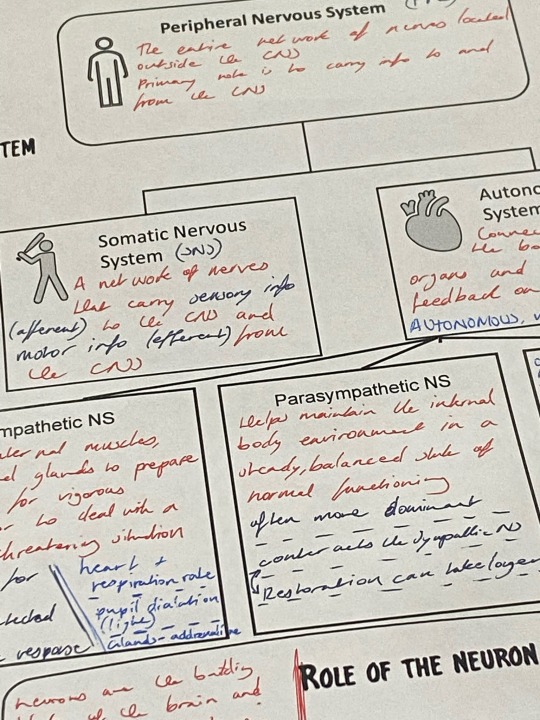 Peripheral Nervous System
The entire network of nerves located
outside the CNS
Primary role is to carry info to and
from the CNS
TEM
Somatic Nervous
System (SNS)
A network of nerves
that carry sensory info
(afferent) to the CNS and
motor info (efferent) from
the CNS
Autono
System
Connec
the bo
organs and
feedback on
AUTONOMOUS,
mpathetic NS
nal muscles,
glands to prepare
for vigorous
to deal with a
threatening situation
for
heart +
respiration rate
pupil dialation
(light)
Glands - addrenaline
response
Parasympathetic NS
Helps maintain the internal
body environment in a
steady, balanced state of
normal functioning
often more dominant
conter acts the sympathic NS
Restoration can take longer
neurons are the building
the brain and
ROLE OF THE NEURON